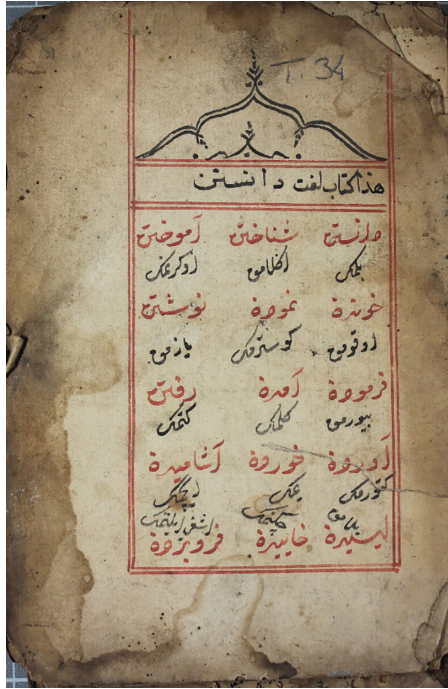 T. 34
هذا كتاب لغت دانستن
دانستن شناختن آموختن
بلمك اكلامق اوكرنمك
خوندة نمودة نوشتن
اوقومق كوسترمك يازمق
فرمودة آمدة رفتن
بيورمق كلمك كتمك
آوردة خوردة آشاميدة
كتورمك يمك ايچمك
يلامق چكنمك
ليسيدة خاييدة فروبردة